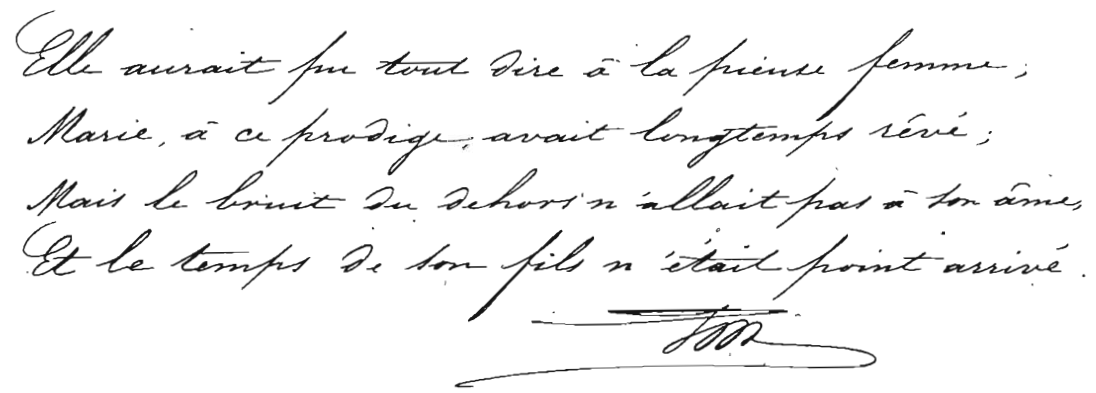 Elle aurait pu tout dire à la pieuse femme;
Marie, à ce prodige, avait longtemps rêvé;
Mais le bruit du dehors n'allait pas à son âme,
Et le temps de son fils n'était point arrivé.